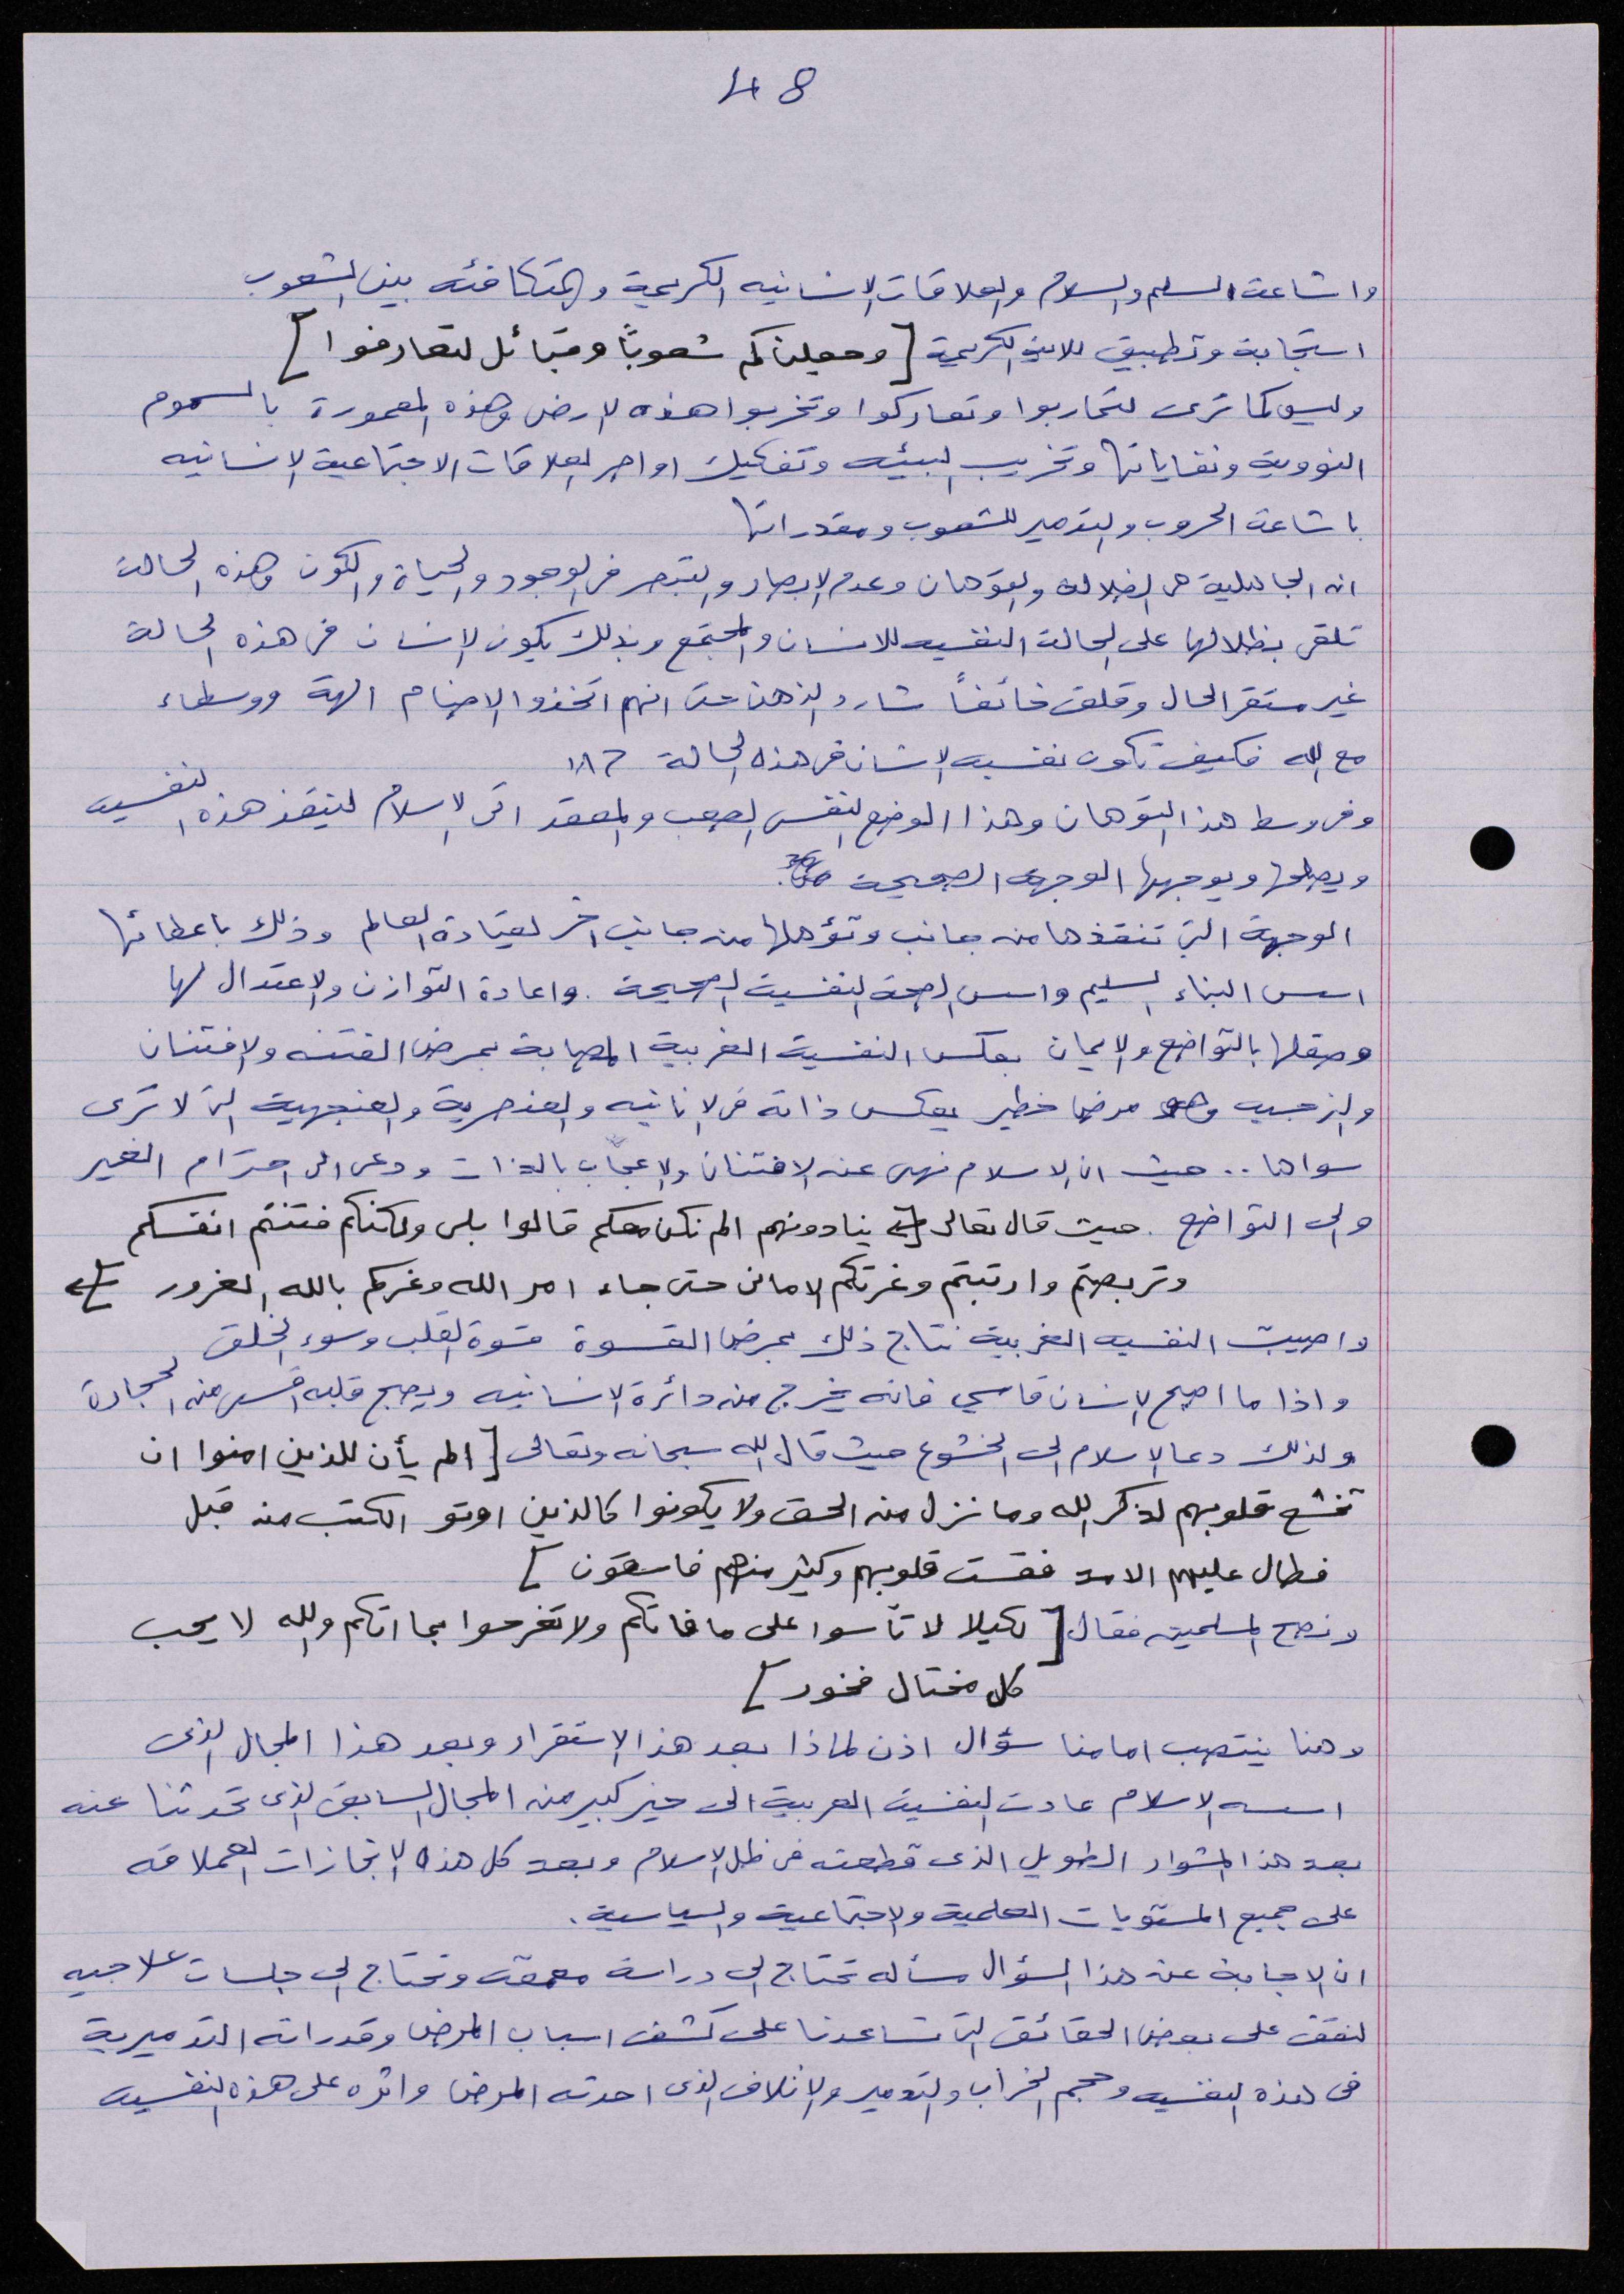 48
واشاعة السلم والسلام والعلاقات الانسانيه الكريمية والمتكافئه بين الشعوب
استجابة وتطبيق للاية الكريمية [وجعلناكم شعوباً وقبائل لتعارفوا]
وليس كما ترى لتحاربوا وتعاركوا وتخربوا هذه الارض وهذه المعمورة بالسموم
النووية ونفاياتها وتخريب البيئه وتفكيك اواصر العلاقات الاجتماعية الانسانيه
باشاعة الحروب والتدمير للشعوب ومقدراتها
ان الجاهلية هى الضلاله والتوهان وعدم الابصار والتبصر فى الوجود والحياة والكون وهذه الحالة
تلقى بظلالها على الحالة النفسيه للانسان والمجتمع وبذلك يكون الانسان فى هذه الحالة
غير مستقر الحال وقلق خائفاً شارد الذهن حتى انهم اتخذوا الاصنام الهة ووسطاء
مع الله فكيف تكون نفسيه الانسان فى هذه الحالة ؟!!
وفى وسط هذا التوهان وهذا الوضع النفسى الصعب والمعقد اتى الاسلام لينقذ هذه النفسيه
ويصلحها ويوجهها الوجهة الصحيحة
الوجهة التى تنقذها من جانب وتؤهلها من جانب اخر لقيادة العالم وذلك باعطائها
اسس البناء السليم واسس الصحة النفسية الصحيحة. واعادة التوازن والاعتدال لها
وصقلها بالتواضع والايمان بعكس النفسية الغربية المصابة بمرض الفتنه والافتنان
والنرجسيه وهو مرضا خطير يعكس ذاته فى الانانيه والعنصرية والعنجهية التى لا ترى
سواها .. حيث ان الاسلام نهى عن الافتنان والاعجاب بالذات ودعى الى احترام الغير
والى التواضع. حيث قال تعالى [ينادونهم الم نكن معكم قالوا بلى ولكنكم فتنتم انفسكم
وتربصتم وارتبتم وغرتكم الامانى حتى جاء امر الله وغركم بالله الغرور]
واصيبت النفسيه الغربية نتاج ذلك بمرض القسوة قسوة القلب وسوء الخلق
واذا ما اصبح الانسان قاسي فانه يخرج من دائرة الانسانيه ويصبح قلبه اقسى من الحجارة
ولذلك دعا الاسلام الى الخشوع حيث قال الله سبحانه وتعالى [الم يأن للذين امنوا ان
تخشع قلوبهم لذكر الله وما نزل من الحق ولا يكونوا كالذين اوتو الكتب من قبل
فطال عليهم الامد فقست قلوبهم وكثير منهم فاسقون]
ونصح المسلمين فقال [لكيلا لا تأسوا على ما فاتكم ولا تفرحوا بما اتكم والله لا يحب
كل مختال فخور]
وهنا ينتصب امامنا سؤال اذن لماذا بعد هذا الاستقرار وبعد هذا المجال الذى
اسسه الاسلام عادت النفسية العربية الى حيز كبير من المجال السابق الذى تحدثنا عنه
بعد هذا المشوار الطويل الذى قطعته فى ظل الاسلام وبعد كل هذه الانجازات العملاقه
على جميع المستويات العلمية والاجتماعية والسياسية.
ان الاجابة عن هذا السؤال مسأله تحتاج الى دراسة معمقه وتحتاج الى جلسات علاجيه
لنقف على بعض الحقائق التى تساعدنا على كشف اسباب المرض وقدراته التدميرية
فى هذه النفسيه وحجم الخراب والتدمير والاتلاف الذى احدثه المرض واثره على هذه النفسيه